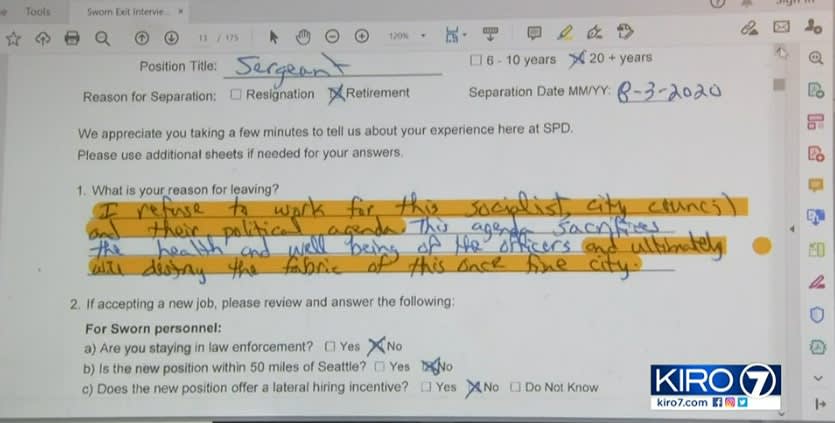 Tools
Sworn Exit Intervie... ×
Sign In
11 / 175
120%
Position Title: Sergeant
☐ 6 - 10 years ☒ 20 + years
Reason for Separation: ☐ Resignation ☒ Retirement
Separation Date MM/YY: 8-3-2020
We appreciate you taking a few minutes to tell us about your experience here at SPD.
Please use additional sheets if needed for your answers.
1. What is your reason for leaving?
I refuse to work for this socialist city council
and their political agenda. This agenda sacrifices
the health and well being of the officers and ultimately
will destroy the fabric of this once fine city.
2. If accepting a new job, please review and answer the following:
For Sworn personnel:
a) Are you staying in law enforcement? ☐ Yes ☒ No
b) Is the new position within 50 miles of Seattle? ☐ Yes ☒ No
c) Does the new position offer a lateral hiring incentive? ☐ Yes ☒ No ☐ Do Not Know
KIRO 7
kiro7.com